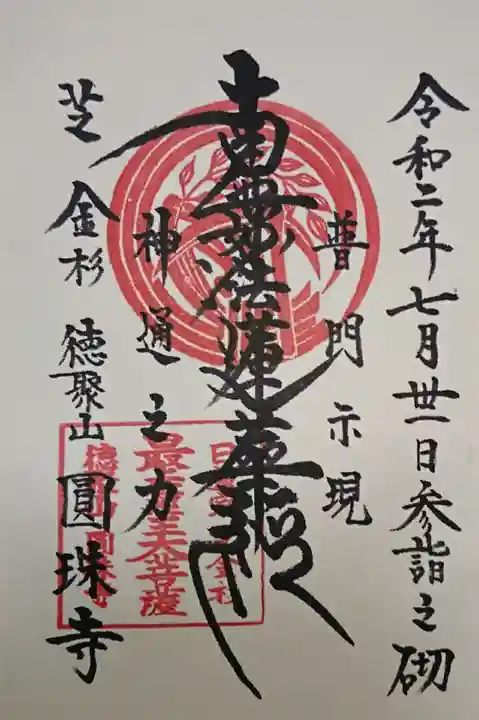 令和二年七月卅一日参詣之砌
普門示現
南無妙法蓮華経
神通之力
芝金杉 徳聚山 圓珠寺
最上位天菩薩